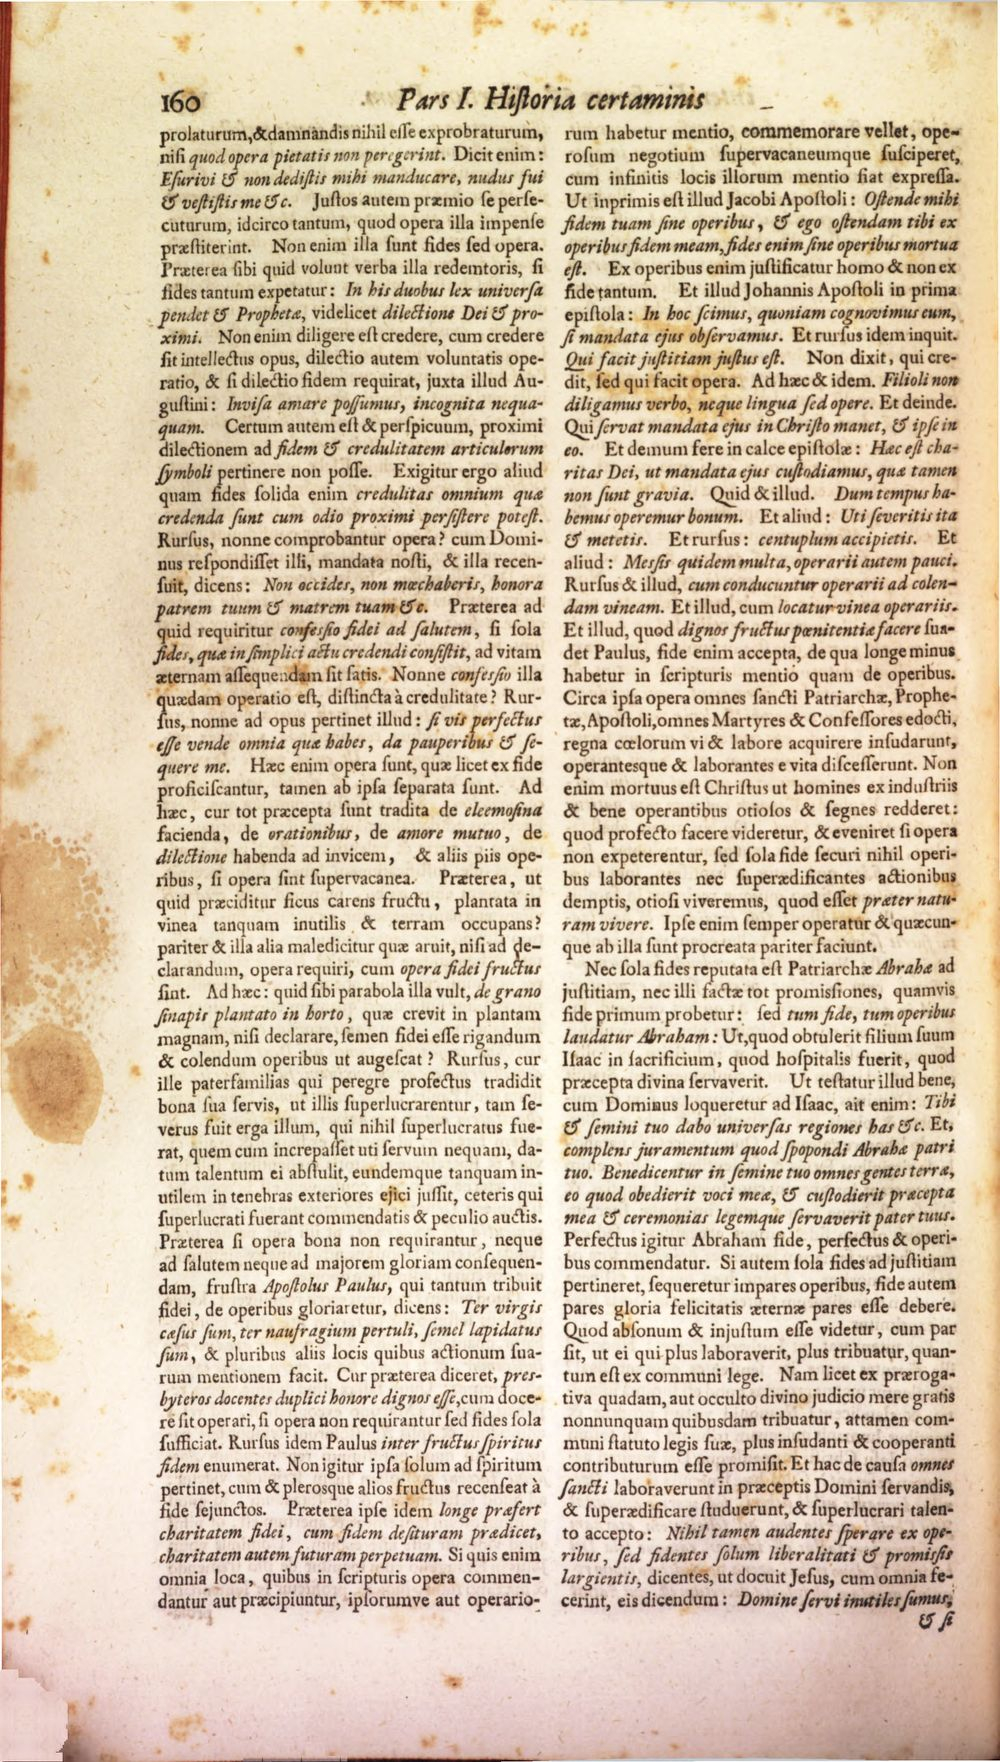 160
Pars I. Hiſtoria certaminis
prolaturum,&damnandis nihil eſſe exprobraturum,
niſi quod opera pietatis non peregerint. Dicit enim:
Eſurivi & non dediſtis mihi manducare, nudus fui
& veſtiſtis me &c. Juſtos autem præmio ſe perſe-
cuturum, idcirco tantum, quod opera illa impenſe
præſtiterint. Non enim illa ſunt fides ſed opera.
Præterea ſibi quid volunt verba illa redemtoris, ſi
fides tantum expetatur: In his duobus lex univerſa
pendet & Prophetæ, videlicet dilectione Dei & pro-
ximi. Non enim diligere eſt credere, cum credere
ſit intellectus opus, dilectio autem voluntatis ope-
ratio, & ſi dilectio fidem requirat, juxta illud Au-
guſtini: Inviſa amare poſſumus, incognita nequa-
quam. Certum autem eſt & perſpicuum, proximi
dilectionem ad fidem & credulitatem articulorum
ſymboli pertinere non poſſe. Exigitur ergo aliud
quam fides ſolida enim credulitas omnium quæ
credenda ſunt cum odio proximi perſiſtere poteſt.
Rurſus, nonne comprobantur opera? cum Domi-
nus reſpondiſſet illi, mandata noſti, & illa recen-
ſuit, dicens: Non occides, non mœchaberis, honora
patrem tuum & matrem tuam &c. Præterea ad
quid requiritur confeſſio fidei ad ſalutem, ſi ſola
fides, quæ in ſimplici actu credendi conſiſtit, ad vitam
æternam aſſequendam ſit ſatis. Nonne confeſſio illa
quædam operatio eſt, diſtincta à credulitate? Rur-
ſus, nonne ad opus pertinet illud: ſi vis perfectus
eſſe vende omnia quæ habes, da pauperibus & ſe-
quere me. Hæc enim opera ſunt, quæ licet ex fide
proficiſcantur, tamen ab ipſa ſeparata ſunt. Ad
hæc, cur tot præcepta ſunt tradita de eleemoſina
facienda, de orationibus, de amore mutuo, de
dilectione habenda ad invicem, & aliis piis ope-
ribus, ſi opera ſint ſupervacanea. Præterea, ut
quid præciditur ficus carens fructu, plantata in
vinea tanquam inutilis & terram occupans?
pariter & illa alia maledicitur quæ aruit, niſi ad de-
clarandum, opera requiri, cum opera fidei fructus
ſint. Ad hæc: quid ſibi parabola illa vult, de grano
ſinapis plantato in horto, quæ crevit in plantam
magnam, niſi declarare, ſemen fidei eſſe rigandum
& colendum operibus ut augeſcat? Rurſus, cur
ille paterfamilias qui peregre profectus tradidit
bona ſua ſervis, ut illis ſuperlucrarentur, tam ſe-
verus fuit erga illum, qui nihil ſuperlucratus fue-
rat, quem cum increpaſſet uti ſervum nequam, da-
tum talentum ei abſtulit, eundemque tanquam in-
utilem in tenebras exteriores ejici juſſit, ceteris qui
ſuperlucrati fuerant commendatis & peculio auctis.
Præterea ſi opera bona non requirantur, neque
ad ſalutem neque ad majorem gloriam conſequen-
dam, fruſtra Apoſtolus Paulus, qui tantum tribuit
fidei, de operibus gloriaretur, dicens: Ter virgis
cæſus ſum, ter naufragium pertuli, ſemel lapidatus
ſum, & pluribus aliis locis quibus actionum ſua-
rum mentionem facit. Cur præterea diceret, pres-
byteros docentes duplici honore dignos eſſe,cum doce-
re ſit operari, ſi opera non requirantur ſed fides ſola
ſufficiat. Rurſus idem Paulus inter fructus ſpiritus
fidem enumerat. Non igitur ipſa ſolum ad ſpiritum
pertinet, cum & pleroſque alios fructus recenſeat à
fide ſejunctos. Præterea ipſe idem longe præfert
charitatem fidei, cum fidem deſituram prædicet,
charitatem autem futuram perpetuam. Si quis enim
omnia loca, quibus in ſcripturis opera commen-
dantur aut præcipiuntur, ipſorumve aut operario-
rum habetur mentio, commemorare vellet, ope-
roſum negotium ſupervacaneumque ſuſciperet,
cum infinitis locis illorum mentio fiat expreſſa.
Ut inprimis eſt illud Jacobi Apoſtoli: Oſtende mihi
fidem tuam ſine operibus, & ego oſtendam tibi ex
operibus fidem meam, fides enim ſine operibus mortua
eſt. Ex operibus enim juſtificatur homo & non ex
fide tantum. Et illud Johannis Apoſtoli in prima
epiſtola: In hoc ſcimus, quoniam cognovimus eum,
ſi mandata ejus obſervamus. Et rurſus idem inquit.
Qui facit juſtitiam juſtus eſt. Non dixit, qui cre-
dit, ſed qui facit opera. Ad hæc & idem. Filioli non
diligamus verbo, neque lingua ſed opere. Et deinde.
Qui ſervat mandata ejus in Chriſto manet, & ipſe in
eo. Et demum fere in calce epiſtolæ: Hæc eſt cha-
ritas Dei, ut mandata ejus cuſtodiamus, quæ tamen
non ſunt gravia. Quid & illud. Dum tempus ha-
bemus operemur bonum. Et aliud: Uti ſeveritis ita
& metetis. Et rurſus: centuplum accipietis. Et
aliud: Meſſis quidem multa, operarii autem pauci.
Rurſus & illud, cum conducuntur operarii ad colen-
dam vineam. Et illud, cum locatur vinea operariis.
Et illud, quod dignos fructus pœnitentiæ facere ſua-
det Paulus, fide enim accepta, de qua longe minus
habetur in ſcripturis mentio quam de operibus.
Circa ipſa opera omnes ſancti Patriarchæ, Prophe-
tæ, Apoſtoli, omnes Martyres & Confeſſores edocti,
regna cœlorum vi & labore acquirere inſudarunt,
operantesque & laborantes e vita diſceſſerunt. Non
enim mortuus eſt Chriſtus ut homines ex induſtriis
& bene operantibus otioſos & ſegnes redderet:
quod profecto facere videretur, & eveniret ſi opera
non expeterentur, ſed ſola fide ſecuri nihil operi-
bus laborantes nec ſuperædificantes actionibus
demptis, otioſi viveremus, quod eſſet præter natu-
ram vivere. Ipſe enim ſemper operatur & quæcun-
que ab illa ſunt procreata pariter faciunt.
Nec ſola fides reputata eſt Patriarchæ Abrahæ ad
juſtitiam, nec illi factæ tot promiſſiones, quamvis
fide primum probetur: ſed tum fide, tum operibus
laudatur Abraham: Ut,quod obtulerit filium ſuum
Iſaac in ſacrificium, quod hoſpitalis fuerit, quod
præcepta divina ſervaverit. Ut teſtatur illud bene,
cum Dominus loqueretur ad Iſaac, ait enim: Tibi
& ſemini tuo dabo univerſas regiones has &c. Et,
complens juramentum quod ſpopondi Abrahæ patri
tuo. Benedicentur in ſemine tuo omnes gentes terræ,
eo quod obedierit voci meæ, & cuſtodierit præcepta
mea & ceremonias legemque ſervaverit pater tuus.
Perfectus igitur Abraham fide, perfectus & operi-
bus commendatur. Si autem ſola fides ad juſtitiam
pertineret, ſequeretur impares operibus, fide autem
pares gloria felicitatis æternæ pares eſſe debere.
Quod abſonum & injuſtum eſſe videtur, cum par
ſit, ut ei qui plus laboraverit, plus tribuatur, quan-
tum eſt ex communi lege. Nam licet ex præroga-
tiva quadam, aut occulto divino judicio mere gratis
nonnunquam quibusdam tribuatur, attamen com-
muni ſtatuto legis ſuæ, plus inſudanti & cooperanti
contributurum eſſe promiſit. Et hac de cauſa omnes
ſancti laboraverunt in præceptis Domini ſervandis,
& ſuperædificare ſtuduerunt, & ſuperlucrari talen-
to accepto: Nihil tamen audentes ſperare ex ope-
ribus, ſed fidentes ſolum liberalitati & promiſſis
largientis, dicentes, ut docuit Jeſus, cum omnia fe-
cerint, eis dicendum: Domine ſervi inutiles ſumus,
& ſi